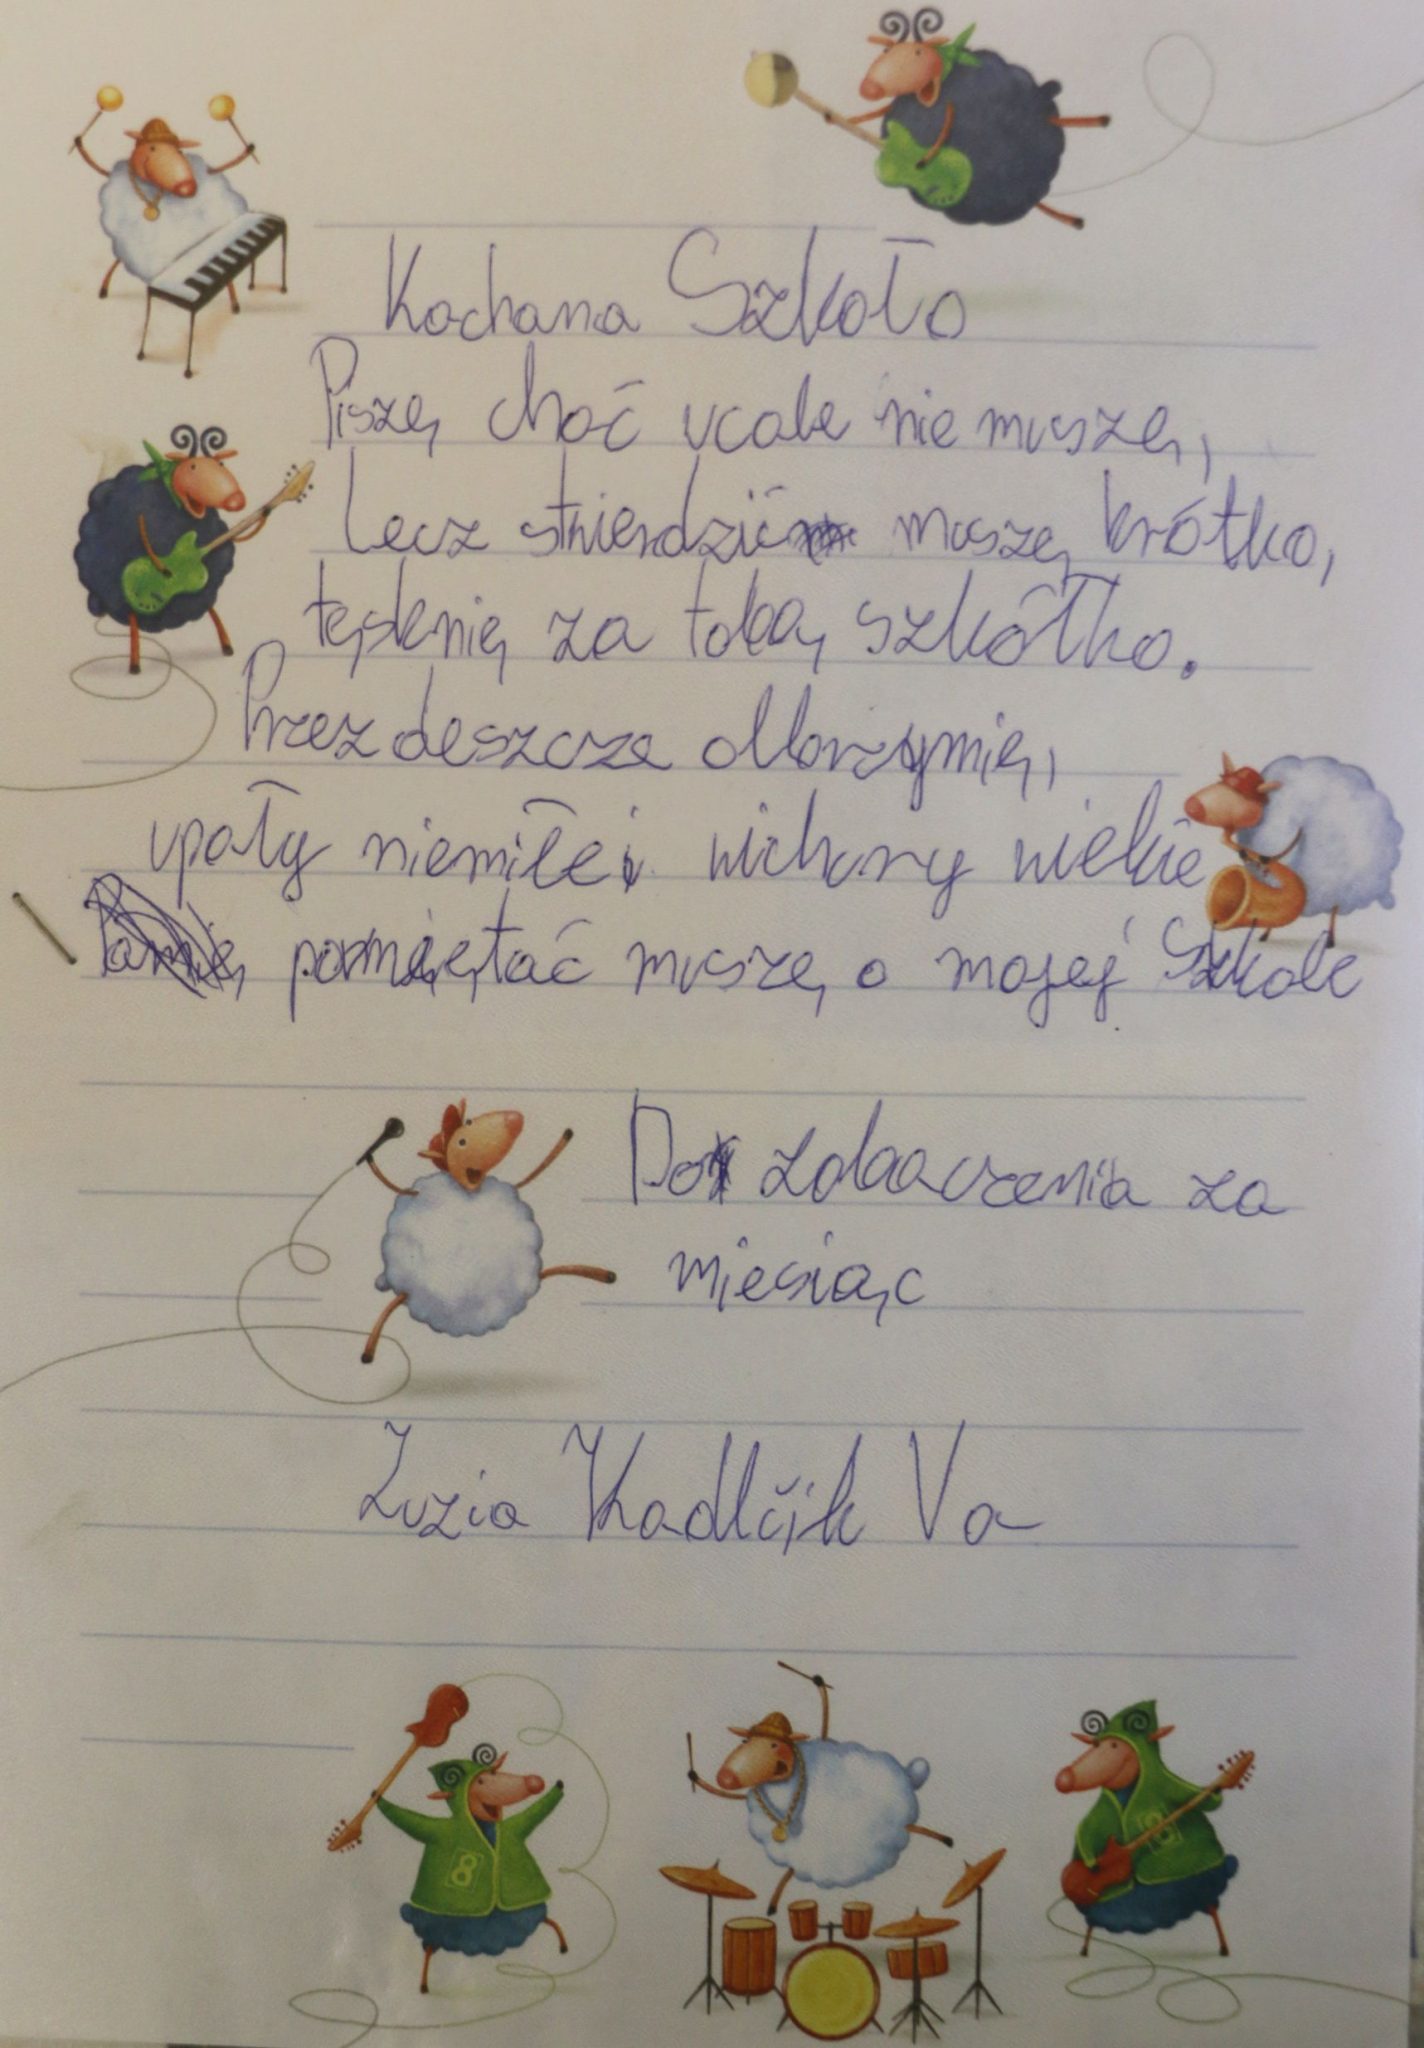 Kochana Szkoło
Piszę, choć wcale nie muszę,
Lecz stwierdzić muszę krótko,
tęsknię za tobą szkółko.
Przez deszcze olbrzymię,
upały niemiłe i wichury wielkie
pamiętać muszę o mojej Szkole
Do zobaczenia za
miesiąc
Zuzia Kadlčik Va
8
8